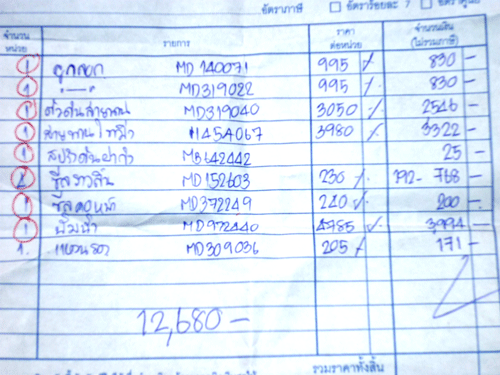 อัตราภาษี อัตราร้อยละ 7 อัตราศูนย์
จำนวน หน่วย รายการ ราคา ต่อหน่วย จำนวนเงิน (ไม่รวมภาษี)
1 ลูกลอก MD 140071 995 830 -
1 MD319022 995 830 -
1 MD319040 3050 2546 -
1 สายพาน 1145A067 3980 3322 -
1 MB642442 25 -
MD152603 230 192- 768 -
1 ซีลคอหน้า MD372249 240 200 -
1 ปั๊มน้ำ MD972440 4785 3994 -
1. แหวนรอง MD309036 205 171 -
12,680 -
รวมราคาทั้งสิ้น